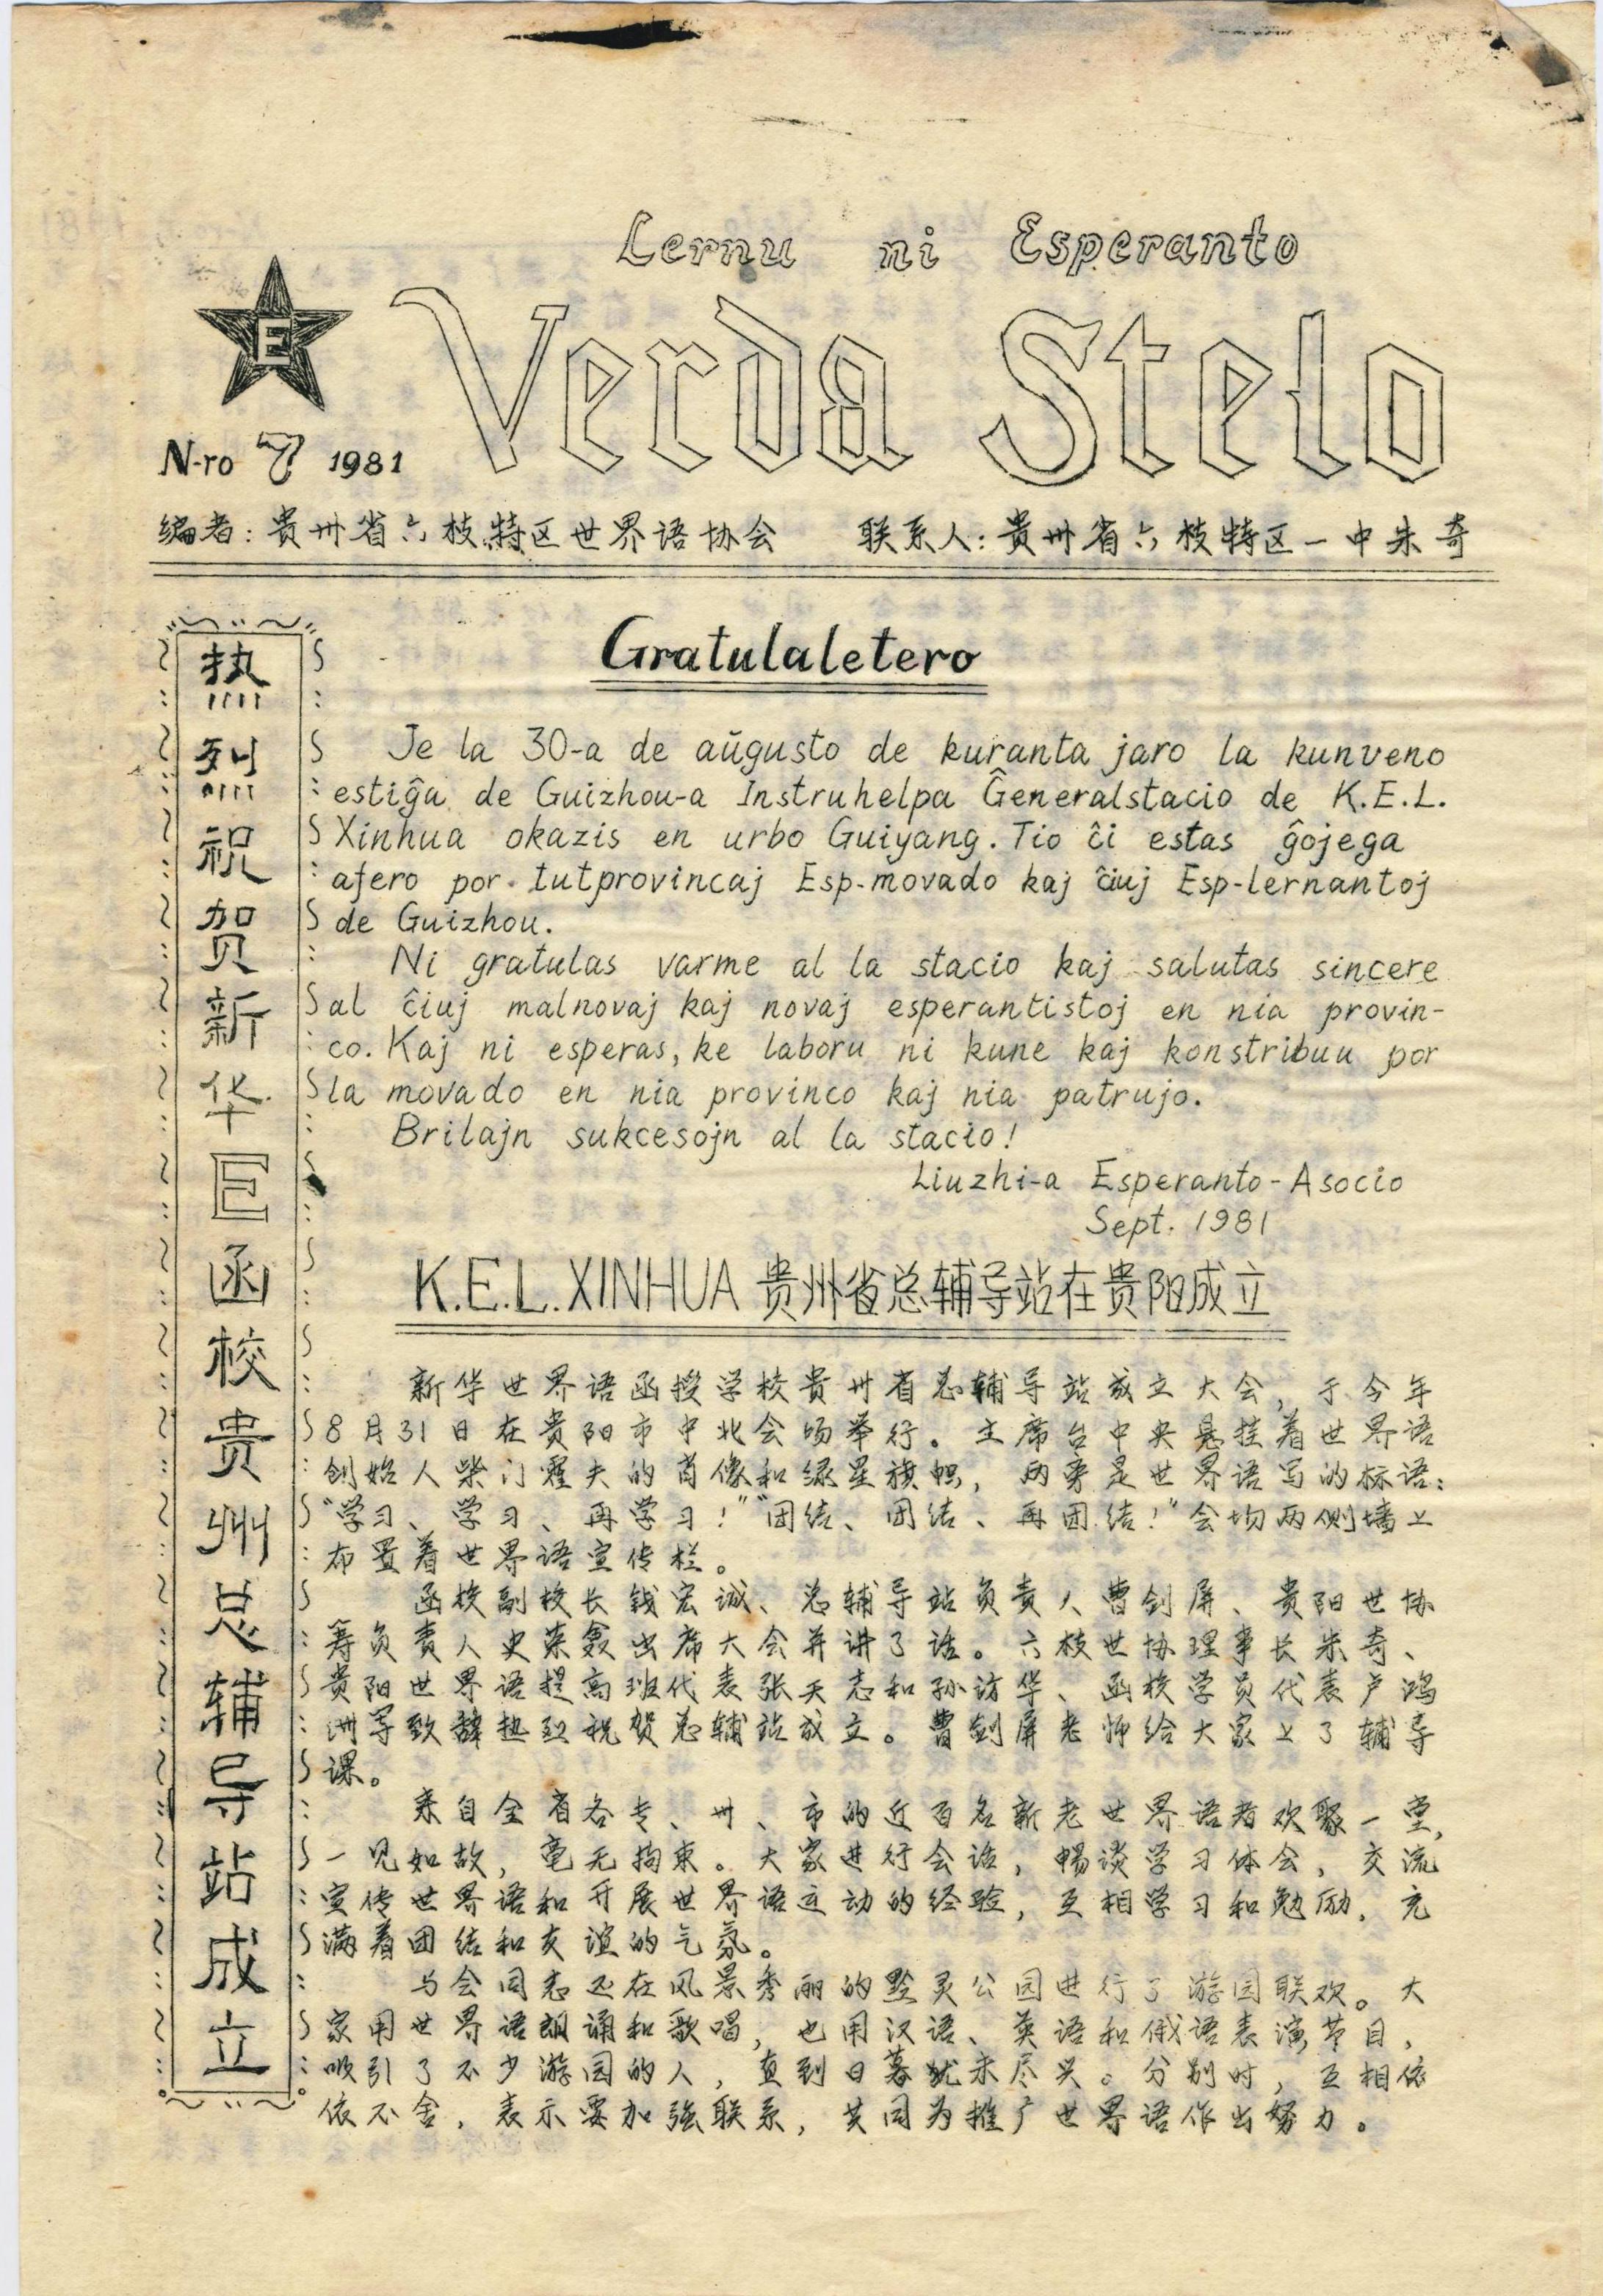 Lernu ni Esperanto
E
Verda Stelo
N-ro 7 1981
编者：贵州省六枝特区世界语协会 联系人：贵州省六枝特区一中朱奇
热烈祝贺新华E函校贵州总辅导站成立
Gratulaletero
Je la 30-a de aŭgusto de kuranta jaro la kunveno
estiĝa de Guizhou-a Instruhelpa Ĝeneralstacio de K.E.L.
Xinhua okazis en urbo Guiyang. Tio ĉi estas ĝojega
afero por tutprovincaj Esp-movado kaj ĉiuj Esp-lernantoj
de Guizhou.
Ni gratulas varme al la stacio kaj salutas sincere
al ĉiuj malnovaj kaj novaj esperantistoj en nia provin-
co. Kaj ni esperas, ke laboru ni kune kaj konstribuu por
la movado en nia provinco kaj nia patrujo.
Brilajn sukcesojn al la stacio!
Liuzhi-a Esperanto-Asocio
Sept. 1981
K.E.L.XINHUA 贵州省总辅导站在贵阳成立
新华世界语函授学校贵州省总辅导站成立大会，于今年
8月31日在贵阳市中北会场举行。主席台中央悬挂着世界语
创始人柴门霍夫的肖像和绿星旗帜，两旁是世界语写的标语：
“学习、学习、再学习！”“团结、团结、再团结！”会场两侧墙上
布置着世界语宣传栏。
函校副校长钱宏诚、总辅导站负责人曹剑屏、贵阳世协
筹负责人史荣 出席大会并讲了话。六枝世协理事长朱奇、
贵阳世界语提高班代表张天志和孙访华、函校学员代表卢鸿
洲等致辞热烈祝贺总辅站成立。曹剑屏老师给大家上了辅导
课。
来自全省各专、州、市的近百名新老世界语者欢聚一堂，
一见如故，毫无拘束。大家进行会话，畅谈学习体会，交流
宣传世界语和开展世界语运动的经验，互相学习和勉励，充
满着团结和友谊的气氛。
与会同志还在风景秀丽的黔灵公园进行了游园联欢。大
家用世界语朗诵和歌唱，也用汉语、英语和俄语表演节目，
吸引了不少游园的人，直到日暮犹未尽兴。分别时，互相依
依不舍，表示要加强联系，共同为推广世界语作出努力。